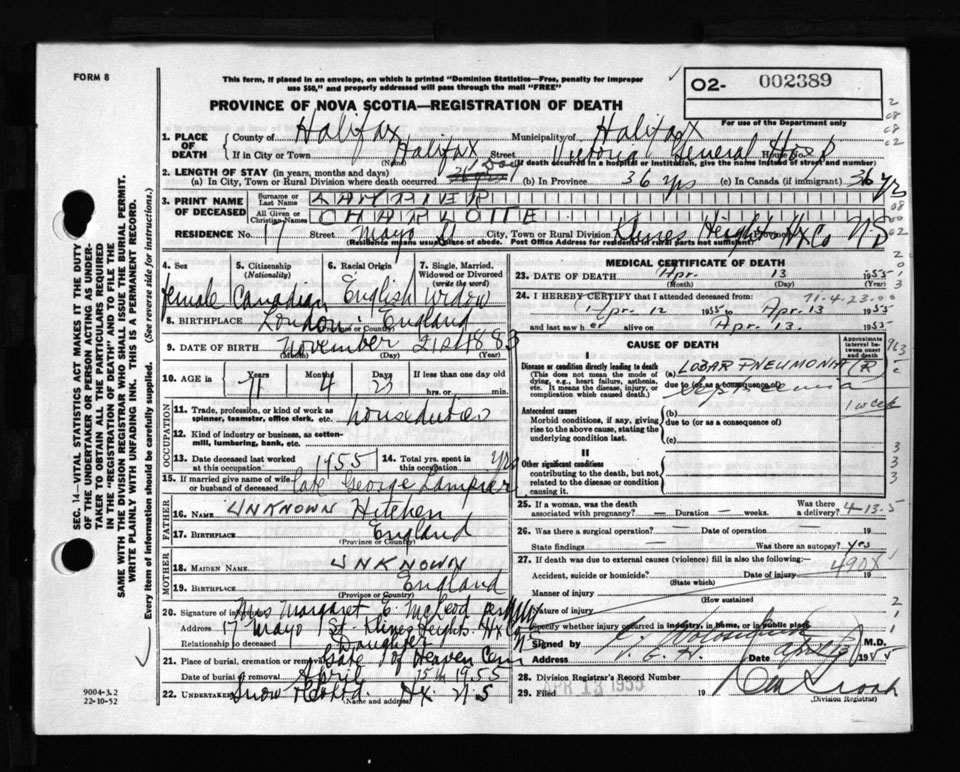 FORM 8
This form, if placed in an envelope, on which is printed "Dominion Statistics—Free, penalty for improper
use $50," and properly addressed will pass through the mail "FREE"
O2- 002389
For use of the Department only
PROVINCE OF NOVA SCOTIA—REGISTRATION OF DEATH
1. PLACE OF DEATH County of Halifax Municipality of Halifax
If in City or Town Halifax Street Victoria General House No. Hosp
(Name) (If death occurred in a hospital or institution, give the name instead of street and number)
2. LENGTH OF STAY (in years, months and days)
(a) In City, Town or Rural Division where death occurred 36 yrs 1 Day (b) In Province 36 yrs (c) In Canada (if immigrant) 36 yrs
3. PRINT NAME OF DECEASED Surname or Last Name LAMPIER
All Given or Christian Names CHARLOTTE
RESIDENCE No. 17 Street Mayo St City, Town or Rural Division Klines Heights Province Hx Co N.S
(Residence means usual place of abode. Post Office Address for residents of rural parts not sufficient)
4. Sex female
5. Citizenship (Nationality) Canadian
6. Racial Origin English
7. Single, Married, Widowed or Divorced (write the word) Widow
8. BIRTHPLACE London England
(Province or Country)
9. DATE OF BIRTH November 21st 1883
(Month) (Day) (Year)
10. AGE in Years 71 Months 4 Days 23 If less than one day
hrs. or min.
OCCUPATION
11. Trade, profession, or kind of work as spinner, teamster, office clerk, etc. housduties
12. Kind of industry or business, as cotton-mill, lumbering, bank, etc.
13. Date deceased last worked at this occupation 1955 14. Total yrs. spent in this occupation yrs
15. If married give name of wife or husband of deceased late George Lampier
FATHER
16. NAME UNKNOWN Hitchen
17. BIRTHPLACE England
(Province or Country)
MOTHER
18. MAIDEN NAME UNKNOWN
19. BIRTHPLACE England
(Province or Country)
20. Signature of informant Mrs Margaret E. McLeod
Address 17 Mayo St. Klines Heights. Hx Co N.S
Relationship to deceased Daughter
21. Place of burial, cremation or removal Gate of Heaven Cem
Date of burial or removal April 15th 1955
22. UNDERTAKER Snow & Co Ltd. Hx. N.S
(Name and address)
MEDICAL CERTIFICATE OF DEATH
23. DATE OF DEATH Apr. 13 1955
(Month) (Day)
71-4-23
24. I HEREBY CERTIFY that I attended deceased from:
Apr. 12 1955 to Apr. 13 1955
and last saw her alive on Apr. 13. 1955
CAUSE OF DEATH
Approximate interval between onset and death
I
Disease or condition directly leading to death
(This does not mean the mode of dying, e.g., heart failure, asthenia, etc. It means the disease, injury, or complication which caused death.)
(a) LOBAR PNEUMONIA (R)
due to (or as a consequence of)
1 week
Antecedent causes
Morbid conditions, if any, giving rise to the above cause, stating the underlying condition last.
(b)
due to (or as a consequence of)
(c)
II
Other significant conditions
contributing to the death, but not related to the disease or condition causing it.
25. If a woman, was the death associated with pregnancy? — Duration — weeks. Was there a delivery? 4-13-5
26. Was there a surgical operation? — Date of operation 19
State findings — Was there an autopsy? yes
27. If death was due to external causes (violence) fill in also the following: 490X
Accident, suicide or homicide? Date of injury 19
(State which)
Manner of injury
(How sustained
Nature of injury
Specify whether injury occurred in industry, in home, or in public place
Signed by M.D.
Address V. G. H. Date April 13 1955
28. Division Registrar's Record Number
29. Filed APR 13 1955 19
(Division Registrar)
SEC. 14—VITAL STATISTICS ACT MAKES IT THE DUTY
OF THE UNDERTAKER OR PERSON ACTING AS UNDER-
TAKER TO OBTAIN ALL THE PARTICULARS REQUIRED
IN THE "REGISTRATION OF DEATH" AND TO FILE THE
SAME WITH THE DIVISION REGISTRAR WHO SHALL ISSUE THE BURIAL PERMIT.
WRITE PLAINLY WITH UNFADING INK. THIS IS A PERMANENT RECORD.
Every item of information should be carefully supplied. (See reverse side for instructions.)
9004-3.2
22-10-52